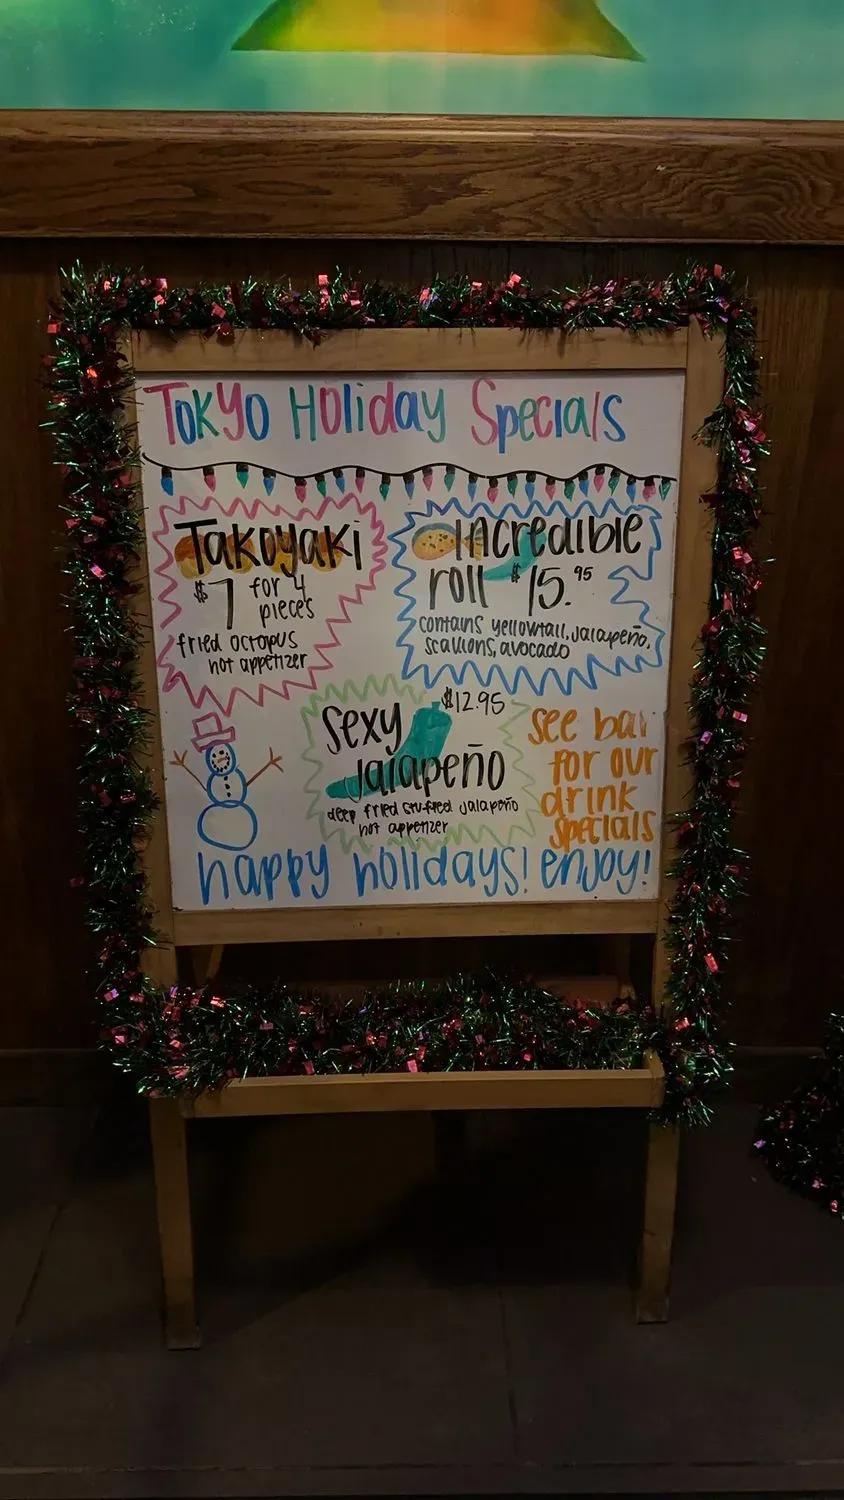 Tokyo Holiday Specials
Takoyaki
$7 for 4
pieces
fried octopus
hot appetizer
Incredible
roll $15.95
contains yellowtail, jalapeño,
scallions, avocado
$12.95
Sexy
Jalapeño
deep fried stuffed jalapeño
hot appetizer
see bar
for our
drink
specials
happy holidays! enjoy!